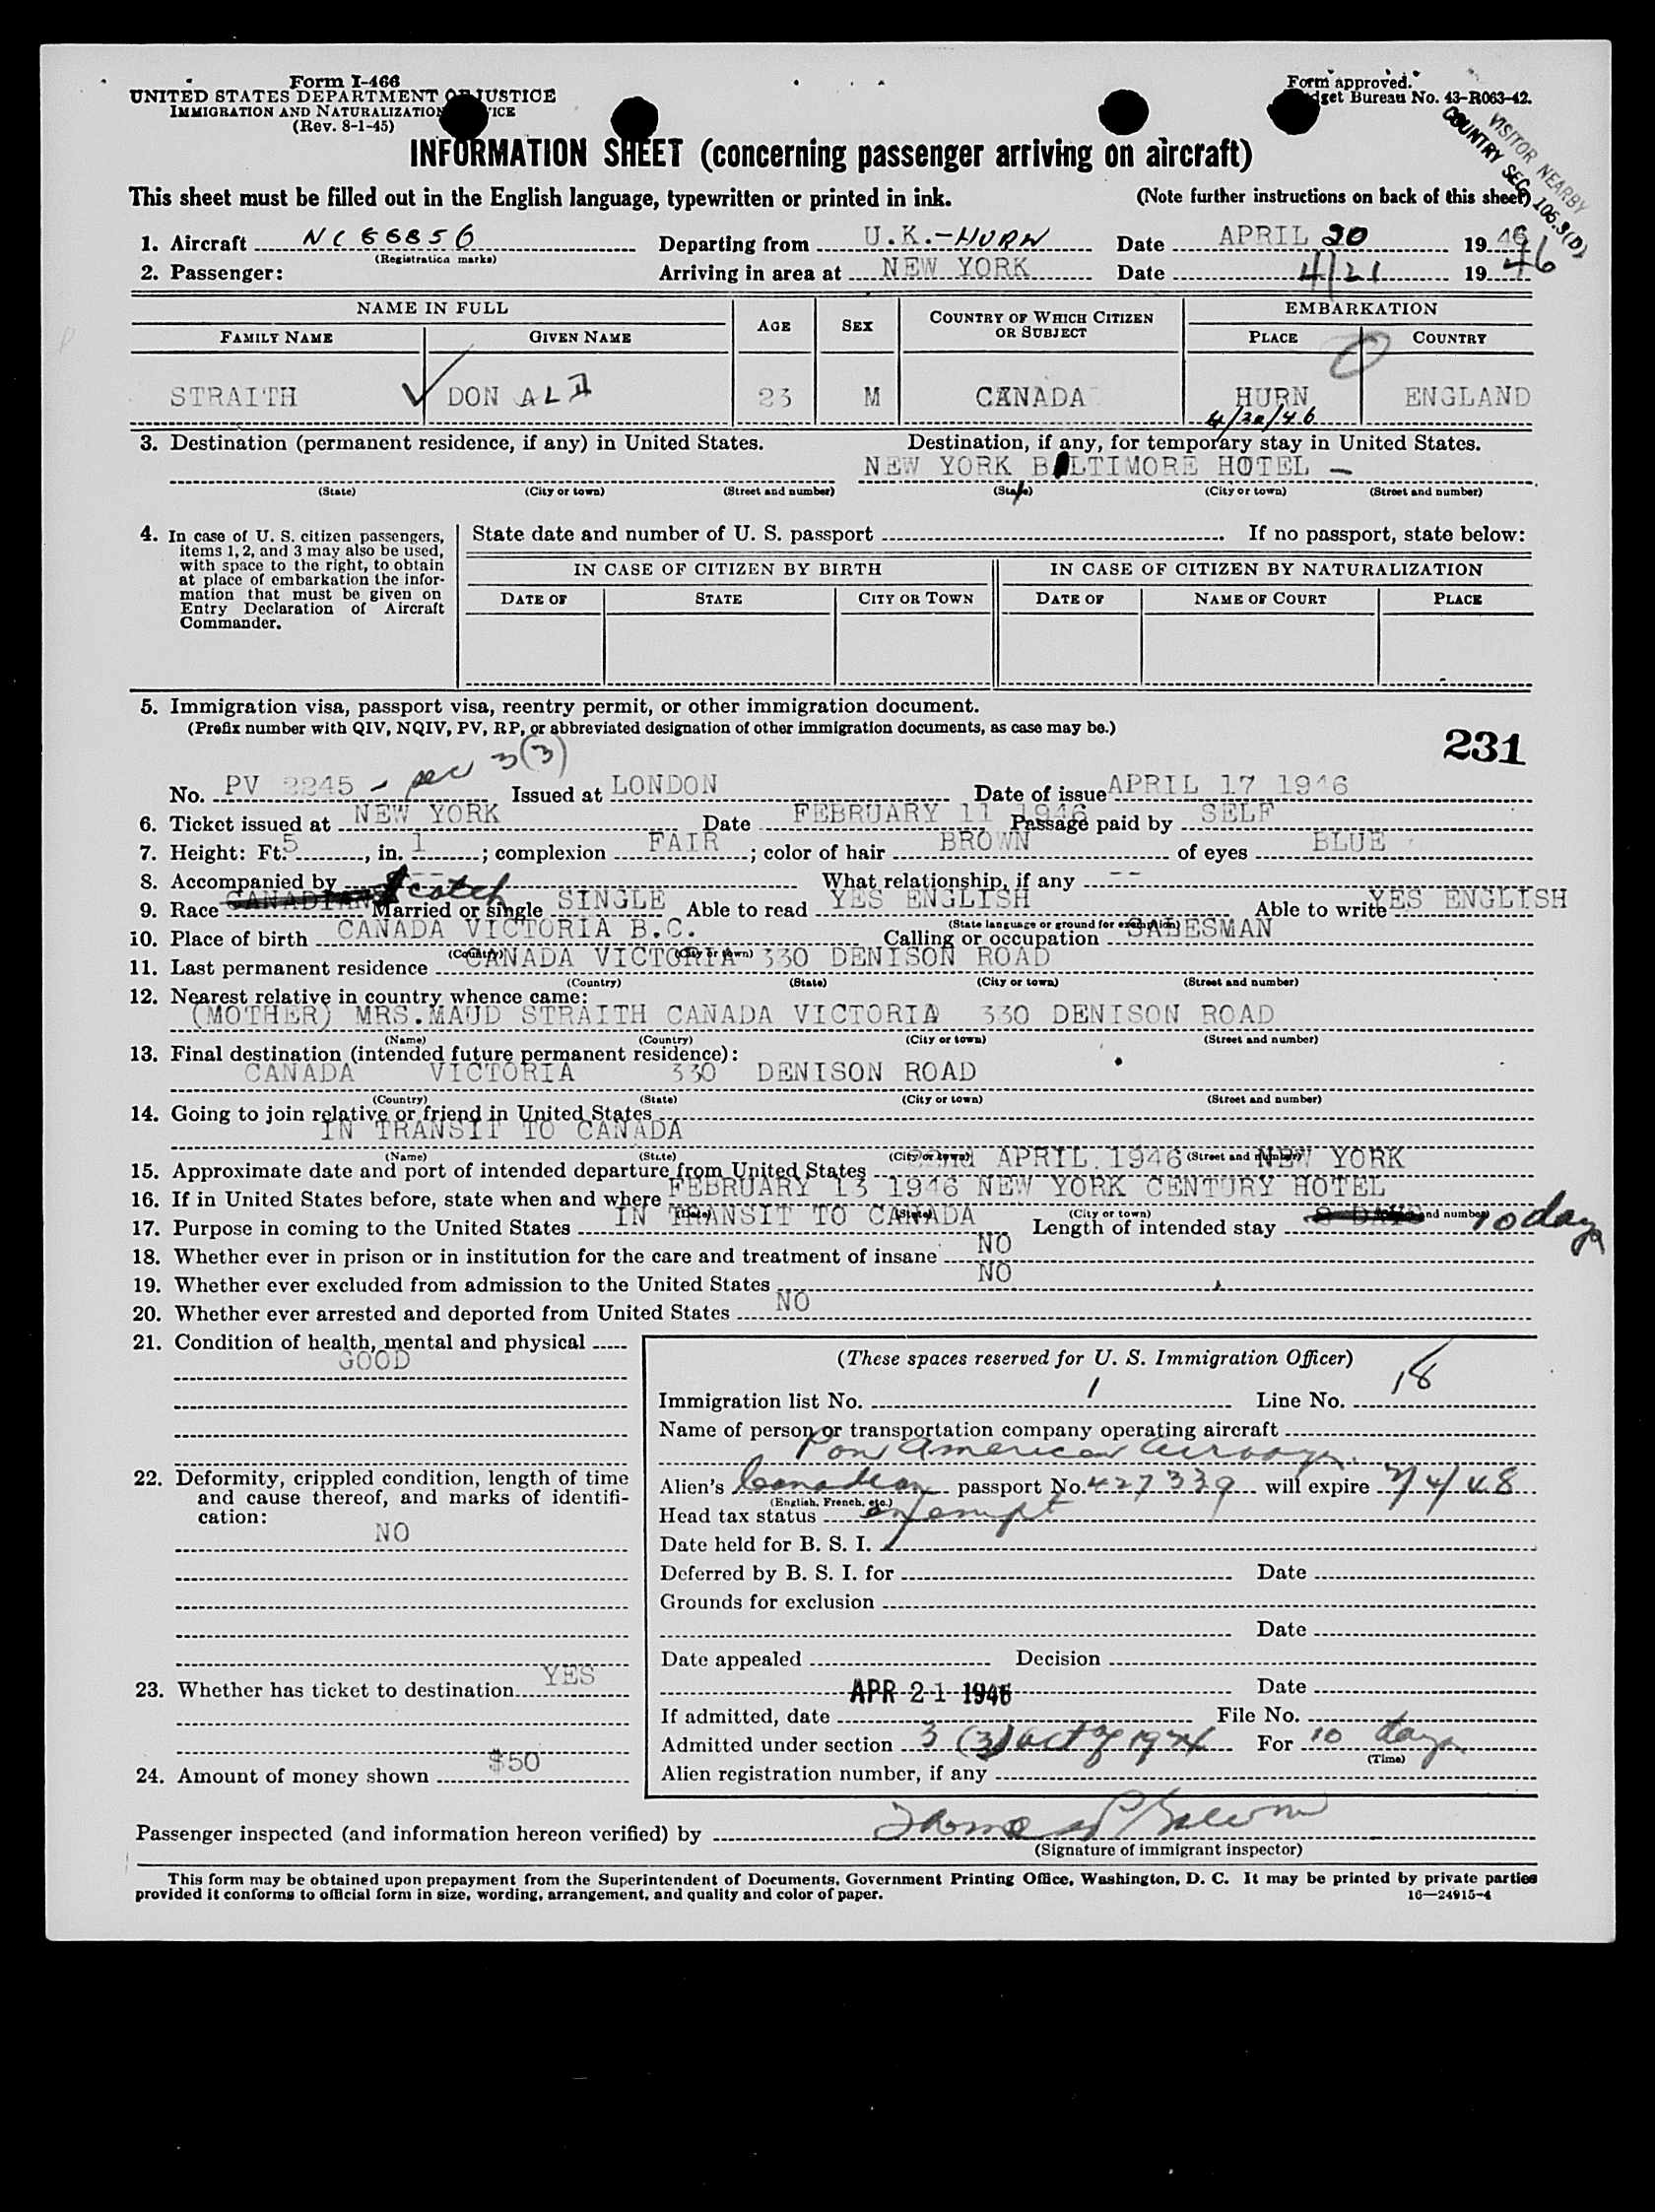 Form I-466
UNITED STATES DEPARTMENT OF JUSTICE
IMMIGRATION AND NATURALIZATION
(Rev. 8-1-45)
Form approved.
Budget Bureau No. 43-R063-42.
VISITOR NEARBY
COUNTRY SEC. 106.3(D)
INFORMATION SHEET (concerning passenger arriving on aircraft)
This sheet must be filled out in the English language, typewritten or printed in ink. (Note further instructions on back of this sheet)
1. Aircraft NC 66856 Departing from U.K.-HURN Date APRIL 20 19 46
(Registration marks)
2. Passenger: Arriving in area at NEW YORK Date 4/21 19 46
NAME IN FULL AGE SEX COUNTRY OF WHICH CITIZEN OR SUBJECT EMBARKATION
FAMILY NAME GIVEN NAME PLACE COUNTRY
STRAITH DON ALD 23 M CANADA HURN ENGLAND
4/20/46
3. Destination (permanent residence, if any) in United States. Destination, if any, for temporary stay in United States.
NEW YORK BILTIMORE HOTEL -
(State) (City or town) (Street and number) (State) (City or town) (Street and number)
4. In case of U. S. citizen passengers, items 1, 2, and 3 may also be used, with space to the right, to obtain at place of embarkation the information that must be given on Entry Declaration of Aircraft Commander.
State date and number of U. S. passport If no passport, state below:
IN CASE OF CITIZEN BY BIRTH IN CASE OF CITIZEN BY NATURALIZATION
DATE OF STATE CITY OR TOWN DATE OF NAME OF COURT PLACE
5. Immigration visa, passport visa, reentry permit, or other immigration document.
(Prefix number with QIV, NQIV, PV, RP, or abbreviated designation of other immigration documents, as case may be.)
231
No. PV 2245 - sec 3(3) Issued at LONDON Date of issue APRIL 17 1946
6. Ticket issued at NEW YORK Date FEBRUARY 11 1946 Passage paid by SELF
7. Height: Ft. 5, in. 1; complexion FAIR; color of hair BROWN of eyes BLUE
8. Accompanied by --- What relationship, if any --
9. Race CANADIAN Scotch Married or single SINGLE Able to read YES ENGLISH Able to write YES ENGLISH
(State language or ground for exemption)
10. Place of birth CANADA VICTORIA B.C. Calling or occupation SALESMAN
(Country) (City or town)
11. Last permanent residence CANADA VICTORIA 330 DENISON ROAD
(Country) (State) (City or town) (Street and number)
12. Nearest relative in country whence came:
(MOTHER) MRS.MAUD STRAITH CANADA VICTORIA 330 DENISON ROAD
(Name) (Country) (City or town) (Street and number)
13. Final destination (intended future permanent residence):
CANADA VICTORIA 330 DENISON ROAD
(Country) (State) (City or town) (Street and number)
14. Going to join relative or friend in United States
IN TRANSIT TO CANADA
(Name) (State) (City or town) (Street and number)
15. Approximate date and port of intended departure from United States 22nd APRIL 1946 NEW YORK
16. If in United States before, state when and where FEBRUARY 13 1946 NEW YORK CENTURY HOTEL
(Date) (State) (City or town) (Street and number)
17. Purpose in coming to the United States IN TRANSIT TO CANADA Length of intended stay 10 days
18. Whether ever in prison or in institution for the care and treatment of insane NO
19. Whether ever excluded from admission to the United States NO
20. Whether ever arrested and deported from United States NO
21. Condition of health, mental and physical
GOOD
22. Deformity, crippled condition, length of time and cause thereof, and marks of identification:
NO
23. Whether has ticket to destination YES
24. Amount of money shown $50
(These spaces reserved for U. S. Immigration Officer)
Immigration list No. 1 Line No. 18
Name of person or transportation company operating aircraft
Pan American Airways.
Alien's Canadian passport No. 427339 will expire 2/4/48
(English, French, etc.)
Head tax status exempt
Date held for B. S. I.
Deferred by B. S. I. for Date
Grounds for exclusion
Date
Date appealed Decision
Date
APR 21 1946
If admitted, date File No.
Admitted under section 3 (3) act of 1924 For 10 days
(Time)
Alien registration number, if any
Passenger inspected (and information hereon verified) by
(Signature of immigrant inspector)
This form may be obtained upon prepayment from the Superintendent of Documents, Government Printing Office, Washington, D. C. It may be printed by private parties
provided it conforms to official form in size, wording, arrangement, and quality and color of paper. 16—24915-4